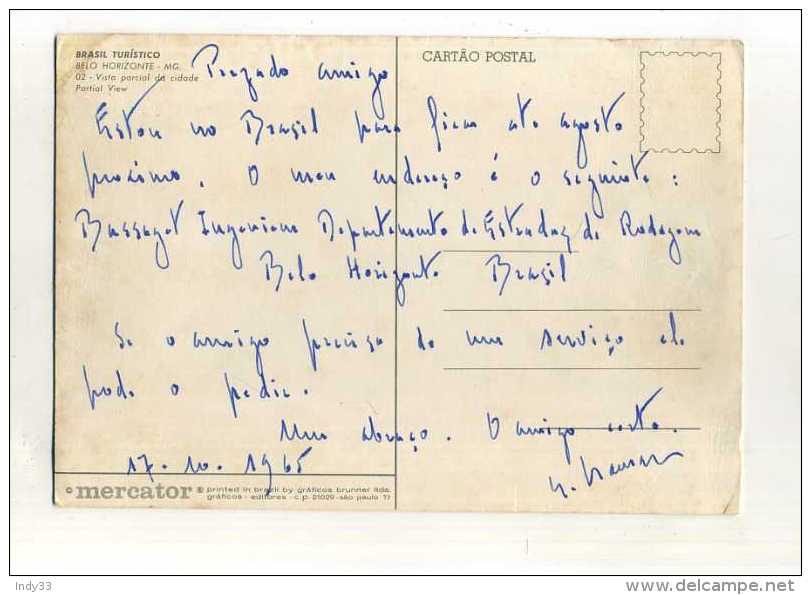 BRASIL TURÍSTICO
BELO HORIZONTE - MG.
02 - Vista parcial da cidade
Partial View
CARTÃO POSTAL
Prezado amigo
Estou no Brasil para ficar ate agosto
proximo. O meu endereço é o seguinte :
Bassaget Ingenieur Departamento de Estradas de Rodagem
Belo Horizonte Brasil
Se o amigo precisa de um serviço ele
pode o pedir.
Um abraço. O amigo
17.10.1965
mercator © printed in brazil by gráficos brunner ltda.
gráficos - editores - c.p. 21029 - são paulo 17
Indy33
delcampe.net